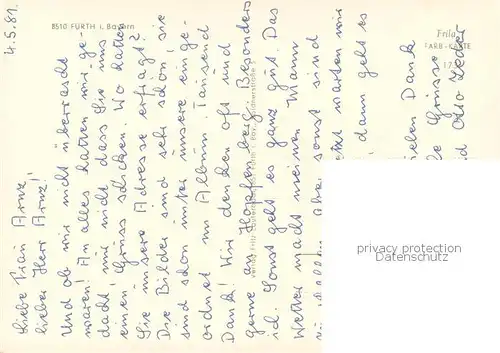 8510 FÜRTH i. Bayern
4.5.81.
Liebe Frau Arnz,
lieber Herr Arnz!
Und ob wir nicht überrascht
waren! An alles hatten wir ge-
dacht, nur nicht dass Sie uns
einen Gruss schicken. Wo hatten
Sie unsere Adresse erfragt?
Die Bilder sind sehr schön, sie
sind schon unter unsere einge-
ordnet im Album. Tausend
Dank! Wir denken oft und
gerne an Hopfenberg. Besonders
ich. Sonst geht es ganz gut. Das
Wetter macht meinen Mann
aber sonst sind
jetzt warten wir
dann geht es
lieben Dank
Grüsse
Otto
ARB-KARTE
privacy protection
Verification: AnsichtskartenCenter.DE